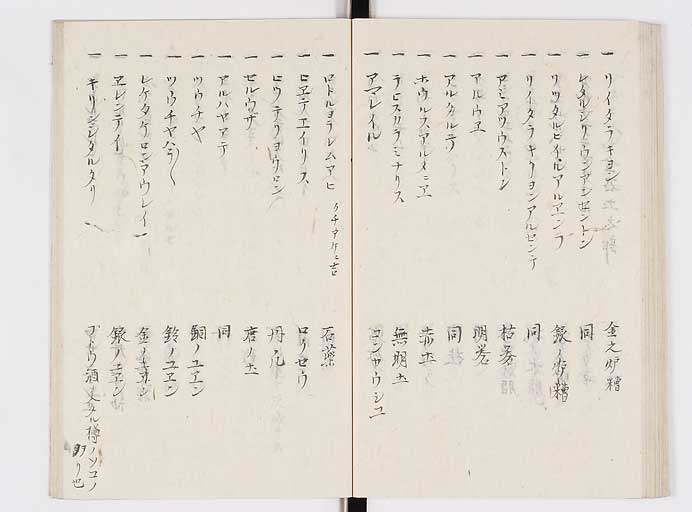 一 リイタラキヨン 金之炉糟
一 同
一 リツタルヒイルアルヱンラ 銀ノ炉糟
一 リイタラキリヨンアルセンテ 同
一 ロミアワウストン 枯礬
一 アルウヱ 明礬
一 アルカルニテ 同
一 ホウルスアルメニヱ 赤土
一 テヒスカラミナリス 無明土
一 アマレイル コンシヤウシユ
一 ロトルヨラレムアヒ 石薬
一 ヒヱテエイリス ロクセウ
一 ヒウテリヨウロン 丹凡
一 セルウザ 唐ノ土
一 アルハヤアテ 同
一 ツウチヤ 銅ノユヱン
一 ツウチヤ 鈴ノユヱン
一 レケタケロンアウレイ 金ノユヱン
一 ヱレンテイ 銀ノユヱン
一 キリシンタルタリ ブドウ酒入タル樽ノソコノヲリ也